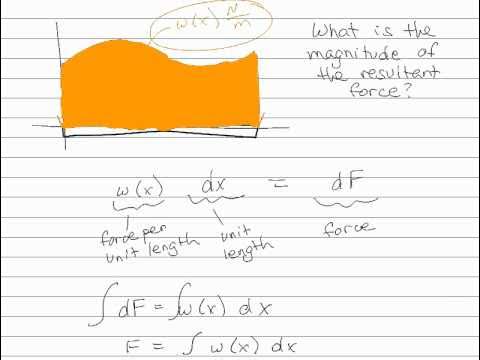 w(x) N/m
What is the
magnitude of
the resultent
force?
w(x) dx = dF
force per
unit length
unit
length
force
∫ dF = ∫ w(x) dx
F = ∫ w(x) dx